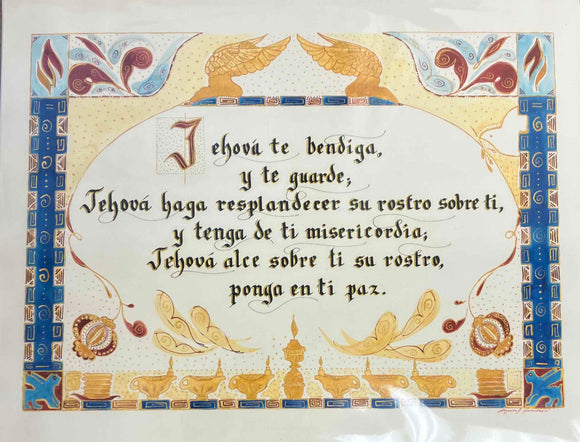 Jehová te bendiga,
y te guarde;
Jehová haga resplandecer su rostro sobre ti,
y tenga de ti misericordia;
Jehová alce sobre ti su rostro,
ponga en ti paz.